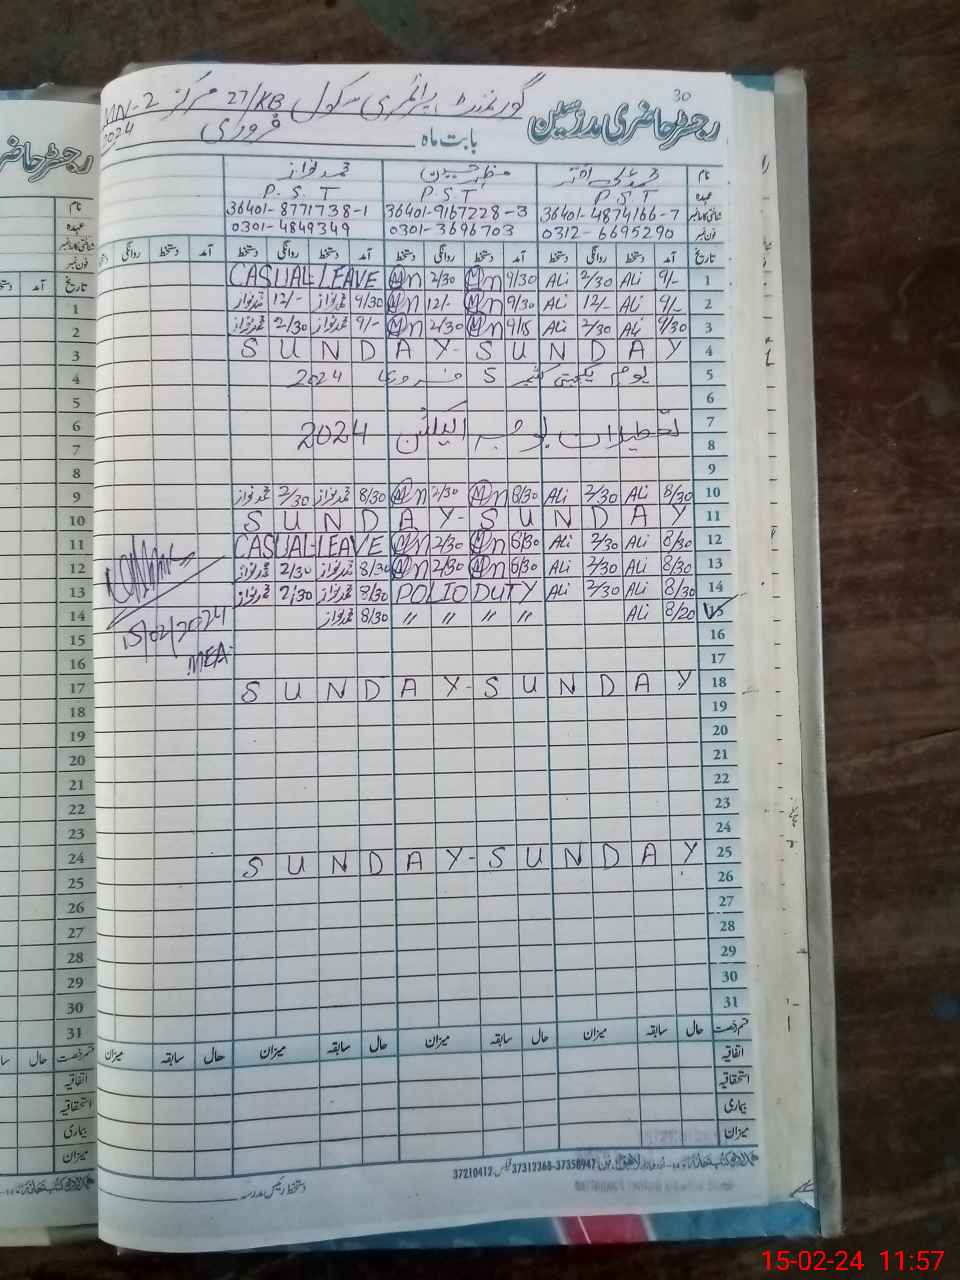 30
رجسٹر حاضری مدرسین
گورنمنٹ پرائمری سکول 27/KB مرکز MN-2
بابت ماہ فروری 2024
نام محمد نواز
عہدہ P.S.T P.S.T P.S.T
شناختی کارڈ نمبر 36401-4874166-7 36401-9167228-3 36401-8771738-1
فون نمبر 0312-6695290 0301-3696703 0301-4849349
تاریخ آمد دستخط روانگی دستخط آمد دستخط روانگی دستخط آمد دستخط روانگی دستخط آمد دستخط روانگی
1 9/- Ali 2/30 Ali 9/30 Mn 2/30 Mn CASUAL-LEAVE
2 9/- Ali 12/- Ali 9/30 Mn 12/- Mn 9/30 محمد نواز 12/- محمد نواز
3 9/30 Ali 2/30 Ali 9/15 Mn 2/30 Mn 9/- محمد نواز 2/30 محمد نواز
4 SUNDAY-SUNDAY
5 یوم یکجہتی کشمیر 5 فروری 2024
6
7 تعطیلات بوجہ الیکشن 2024
8
9
10 8/30 Ali 2/30 Ali 8/30 Mn 2/30 Mn 8/30 محمد نواز 2/30 محمد نواز
11 SUNDAY-SUNDAY
12 8/30 Ali 2/30 Ali 8/30 Mn 2/30 Mn CASUAL-LEAVE
13 8/30 Ali 2/30 Ali 8/30 Mn 2/30 Mn 8/30 محمد نواز 2/30 محمد نواز
14 8/30 Ali 2/30 Ali POLIO DUTY 8/30 محمد نواز 2/30 محمد نواز
15 8/20 Ali " " " " 8/30 محمد نواز
15/02/2024
MEA
16
17
18 SUNDAY-SUNDAY
19
20
21
22
23
24
25 SUNDAY-SUNDAY
26
27
28
29
30
31
قسم رخصت حال سابقہ میزان حال سابقہ میزان حال سابقہ میزان حال سابقہ میزان
اتفاقیہ
استحقاقیہ
بیماری
میزان
37312368-37350947 فیکس:37210412
دستخط رئیس مدرسہ
رجسٹر حاضر
نام
عہدہ
شناختی کارڈ نمبر
فون نمبر
تاریخ آمد
1
2
3
4
5
6
7
8
9
10
11
12
13
14
15
16
17
18
19
20
21
22
23
24
25
26
27
28
29
30
31
قسم رخصت حال
اتفاقیہ
استحقاقیہ
بیماری
میزان
15-02-24 11:57